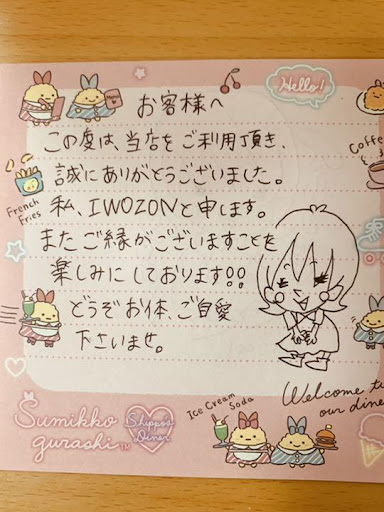 Hello!
お客様へ
この度は、当店をご利用頂き、
誠にありがとうございました。
私、IWOZONと申します。
またご縁がございますことを
楽しみにしております!!
どうぞお体、ご自愛
下さいませ。
Coffee
French
Fries
Ice Cream
Soda
Welcome to
our diner
Sumikko
gurashi™
Shippos
Diner